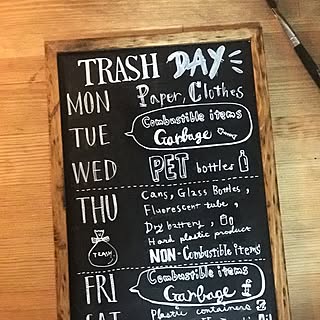 TRASH DAY
MON Paper, Clothes
TUE Combustible items
Garbage
WED PET bottles
THU Cans, Glass Bottles,
Fluorescent tube,
Dry battery,
Hard plastic product
TRASH NON-Combustible items
FRI Combustible items
Garbage
SAT Plastic containers